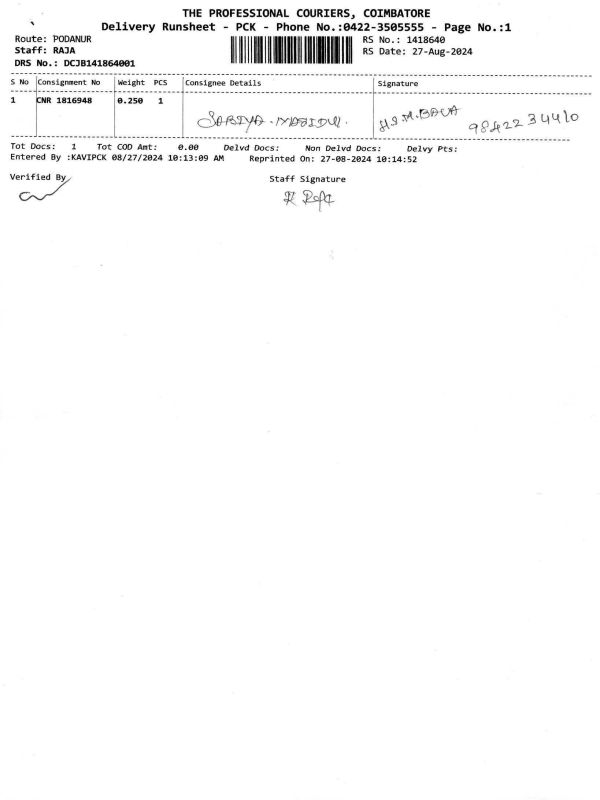 THE PROFESSIONAL COURIERS, COIMBATORE
Delivery Runsheet - PCK - Phone No.:0422-3505555 - Page No.:1
Route: PODANUR
RS No.: 1418640
Staff: RAJA
RS Date: 27-Aug-2024
DRS No.: DCJB141864001
S No Consignment No Weight PCS Consignee Details Signature
1 CNR 1816948 0.250 1 SABIYA 9842234410
Tot Docs: 1 Tot COD Amt: 0.00 Delvd Docs: Non Delvd Docs: Delvy Pts:
Entered By :KAVIPCK 08/27/2024 10:13:09 AM Reprinted On: 27-08-2024 10:14:52
Verified By Staff Signature